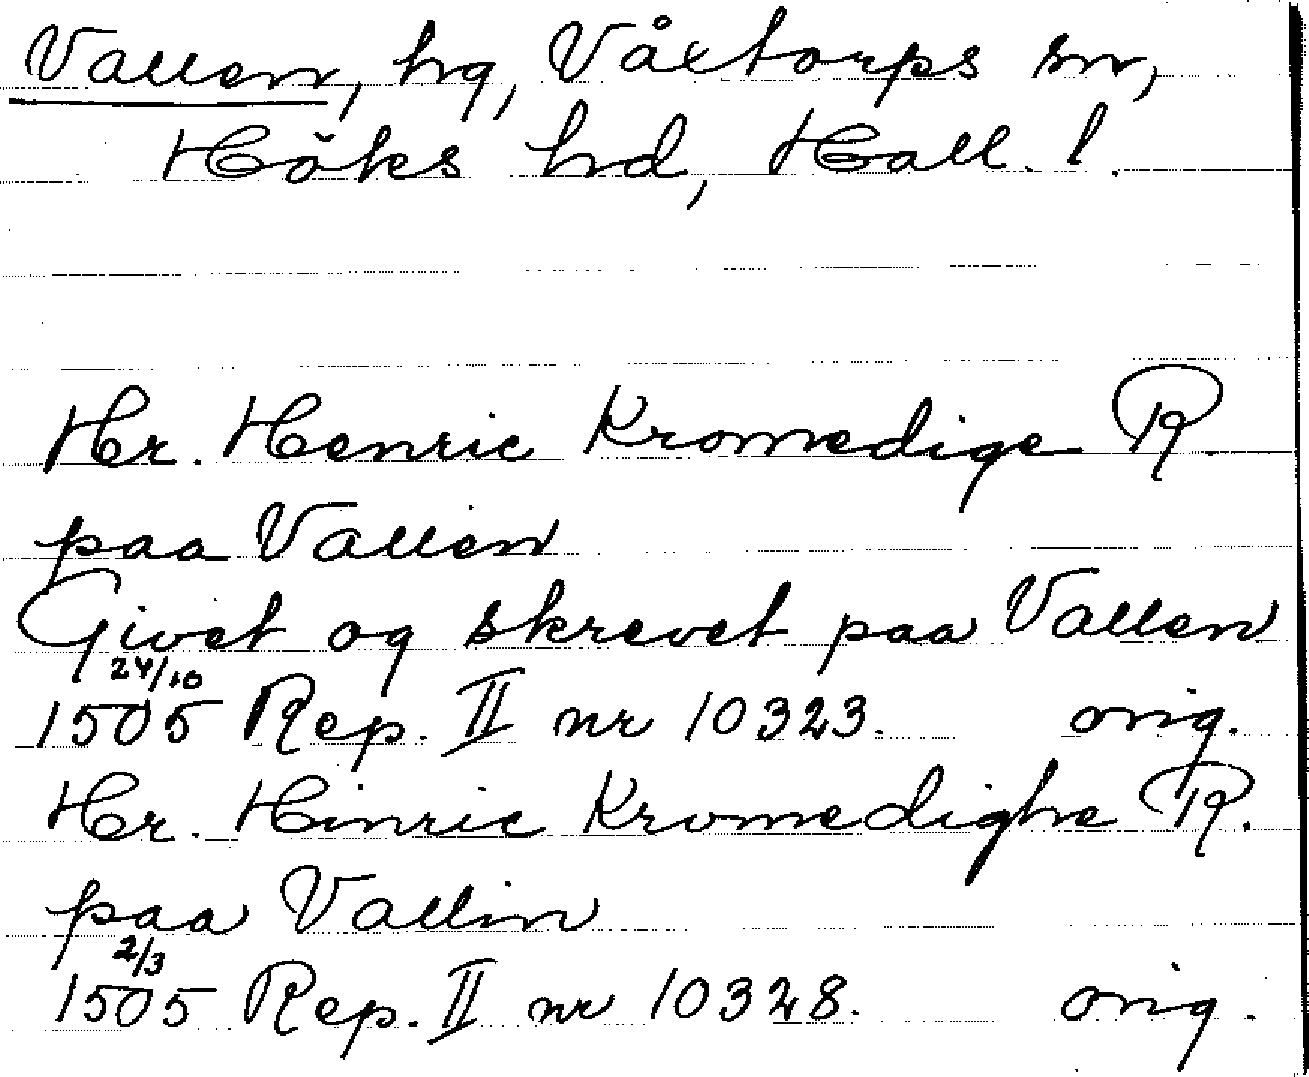 Vallen, hg, Våxtorps sn,
Höks hd, Hall. l.
Hr. Henric Kromedige R
paa Vallen
Givet og skrevet paa Vallen
24/10
1505 Rep. II nr 10323. orig.
Hr. Hinric Kromedighe R.
paa Vallin
2/3
1505 Rep. II nr 10328. orig.